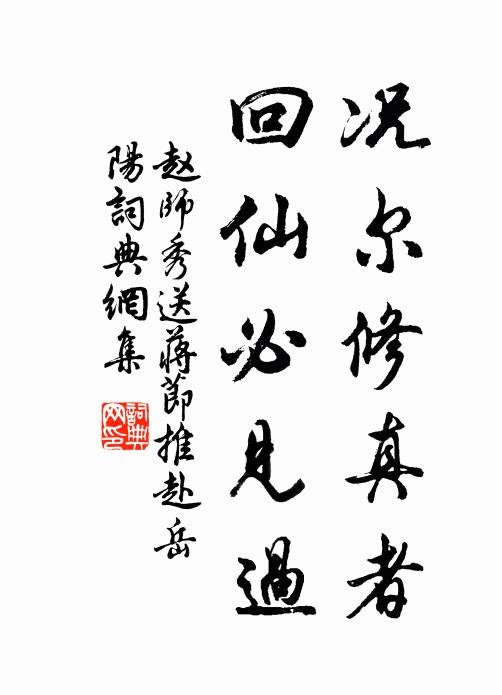 况尔修真者
回仙必見過
赵師秀送蒋節推赴岳
陽詞典網集
詞典
网印